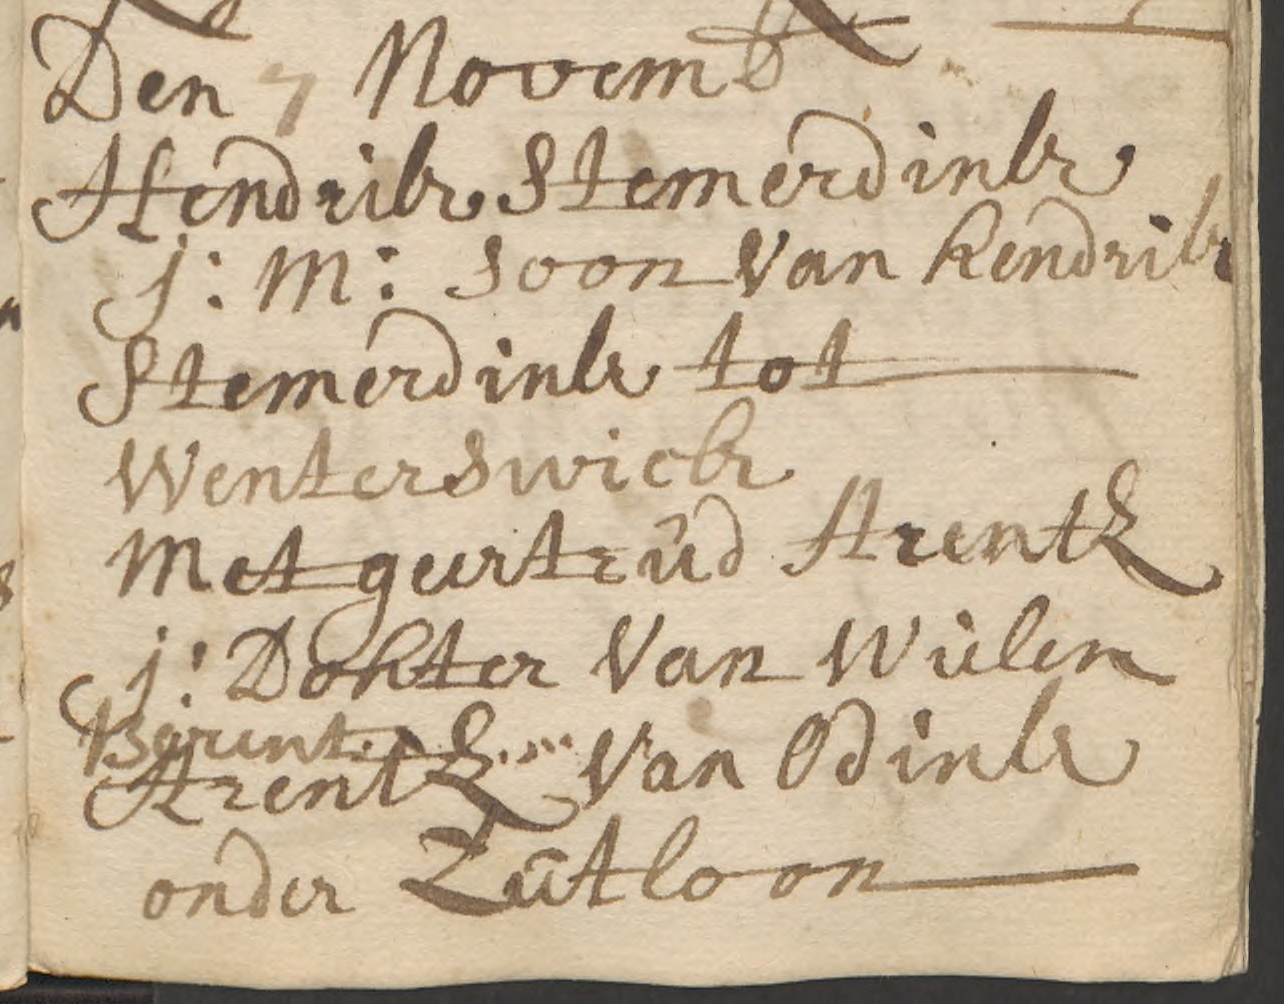 Den 7 Novemb
Hendrik Stemerdink
j: M: soon Van hendrik
Stemerdink tot
Wenterswick
Met geertrud Arentz
j: Dohter Van Wilem
Arentz Van Odink
onder Zutloon